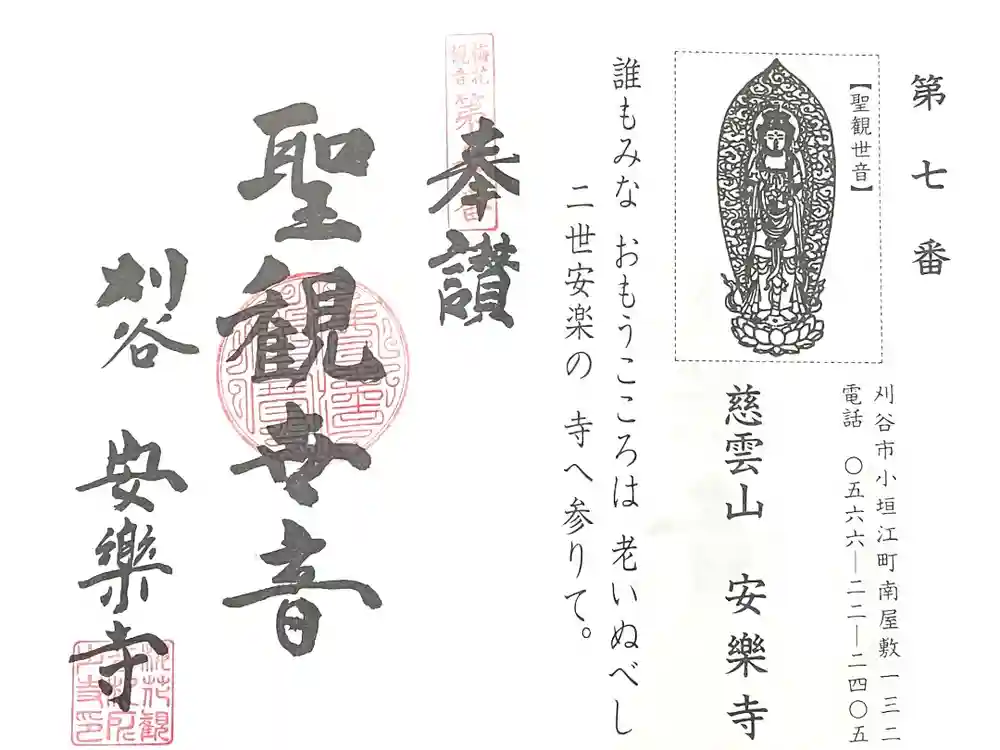 第七番
【聖観世音】
刈谷市小垣江町南屋敷一三二
電話 〇五六六―二二―二四〇五
慈雲山 安樂寺
誰もみな おもうこころは 老いぬべし
二世安楽の 寺へ参りて。
奉讃
聖観世音
刈谷 安樂寺